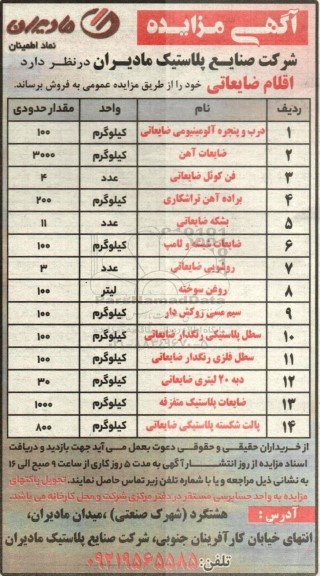 آگهی مزایده
مادیران
نماد اطمینان
شرکت صنایع پلاستیک مادیران درنظر دارد
اقلام ضایعاتی خود را از طریق مزایده عمومی به فروش برساند.
ردیف نام واحد مقدار حدودی
۱ درب و پنجره آلومینیومی ضایعاتی کیلوگرم ۱۰۰
۲ ضایعات آهن کیلوگرم ۳۰۰۰
۳ فن کوئل ضایعاتی عدد ۴
۴ براده آهن تراشکاری کیلوگرم ۲۰۰
۵ بشکه ضایعاتی عدد ۱۱
۶ ضایعات شیشه و لامپ کیلوگرم ۱۰۰
۷ روشویی ضایعاتی عدد ۳
۸ روغن سوخته لیتر ۱۰۰
۹ سیم مسی روکش دار کیلوگرم ۱۰۰
۱۰ سطل پلاستیکی رنگدار ضایعاتی کیلوگرم ۱۰۰
۱۱ سطل فلزی رنگدار ضایعاتی کیلوگرم ۱۰۰
۱۲ دبه ۲۰ لیتری ضایعاتی کیلوگرم ۳۰
۱۳ ضایعات پلاستیک متفرقه کیلوگرم ۱۰۰۰
۱۴ پالت شکسته پلاستیکی ضایعاتی کیلوگرم ۸۰۰
ParsNamadData
از خریداران حقیقی و حقوقی دعوت بعمل می آید جهت بازدید و دریافت
اسناد مزایده از روز انتشار آگهی به مدت ۵ روز کاری از ساعت ۹ صبح الی ۱۶
به نشانی ذیل مراجعه و یا با شماره تلفن زیر تماس حاصل نمایند. تحویل پاکتهای
مزایده به واحد حسابرسی مستقر در دفتر مرکزی شرکت و محل کارخانه می باشد.
آدرس : هشتگرد (شهرک صنعتی) ،میدان مادیران،
انتهای خیابان کارآفرینان جنوبی، شرکت صنایع پلاستیک مادیران
تلفن: ۰۹۲۱۹۵۶۵۵۸۵